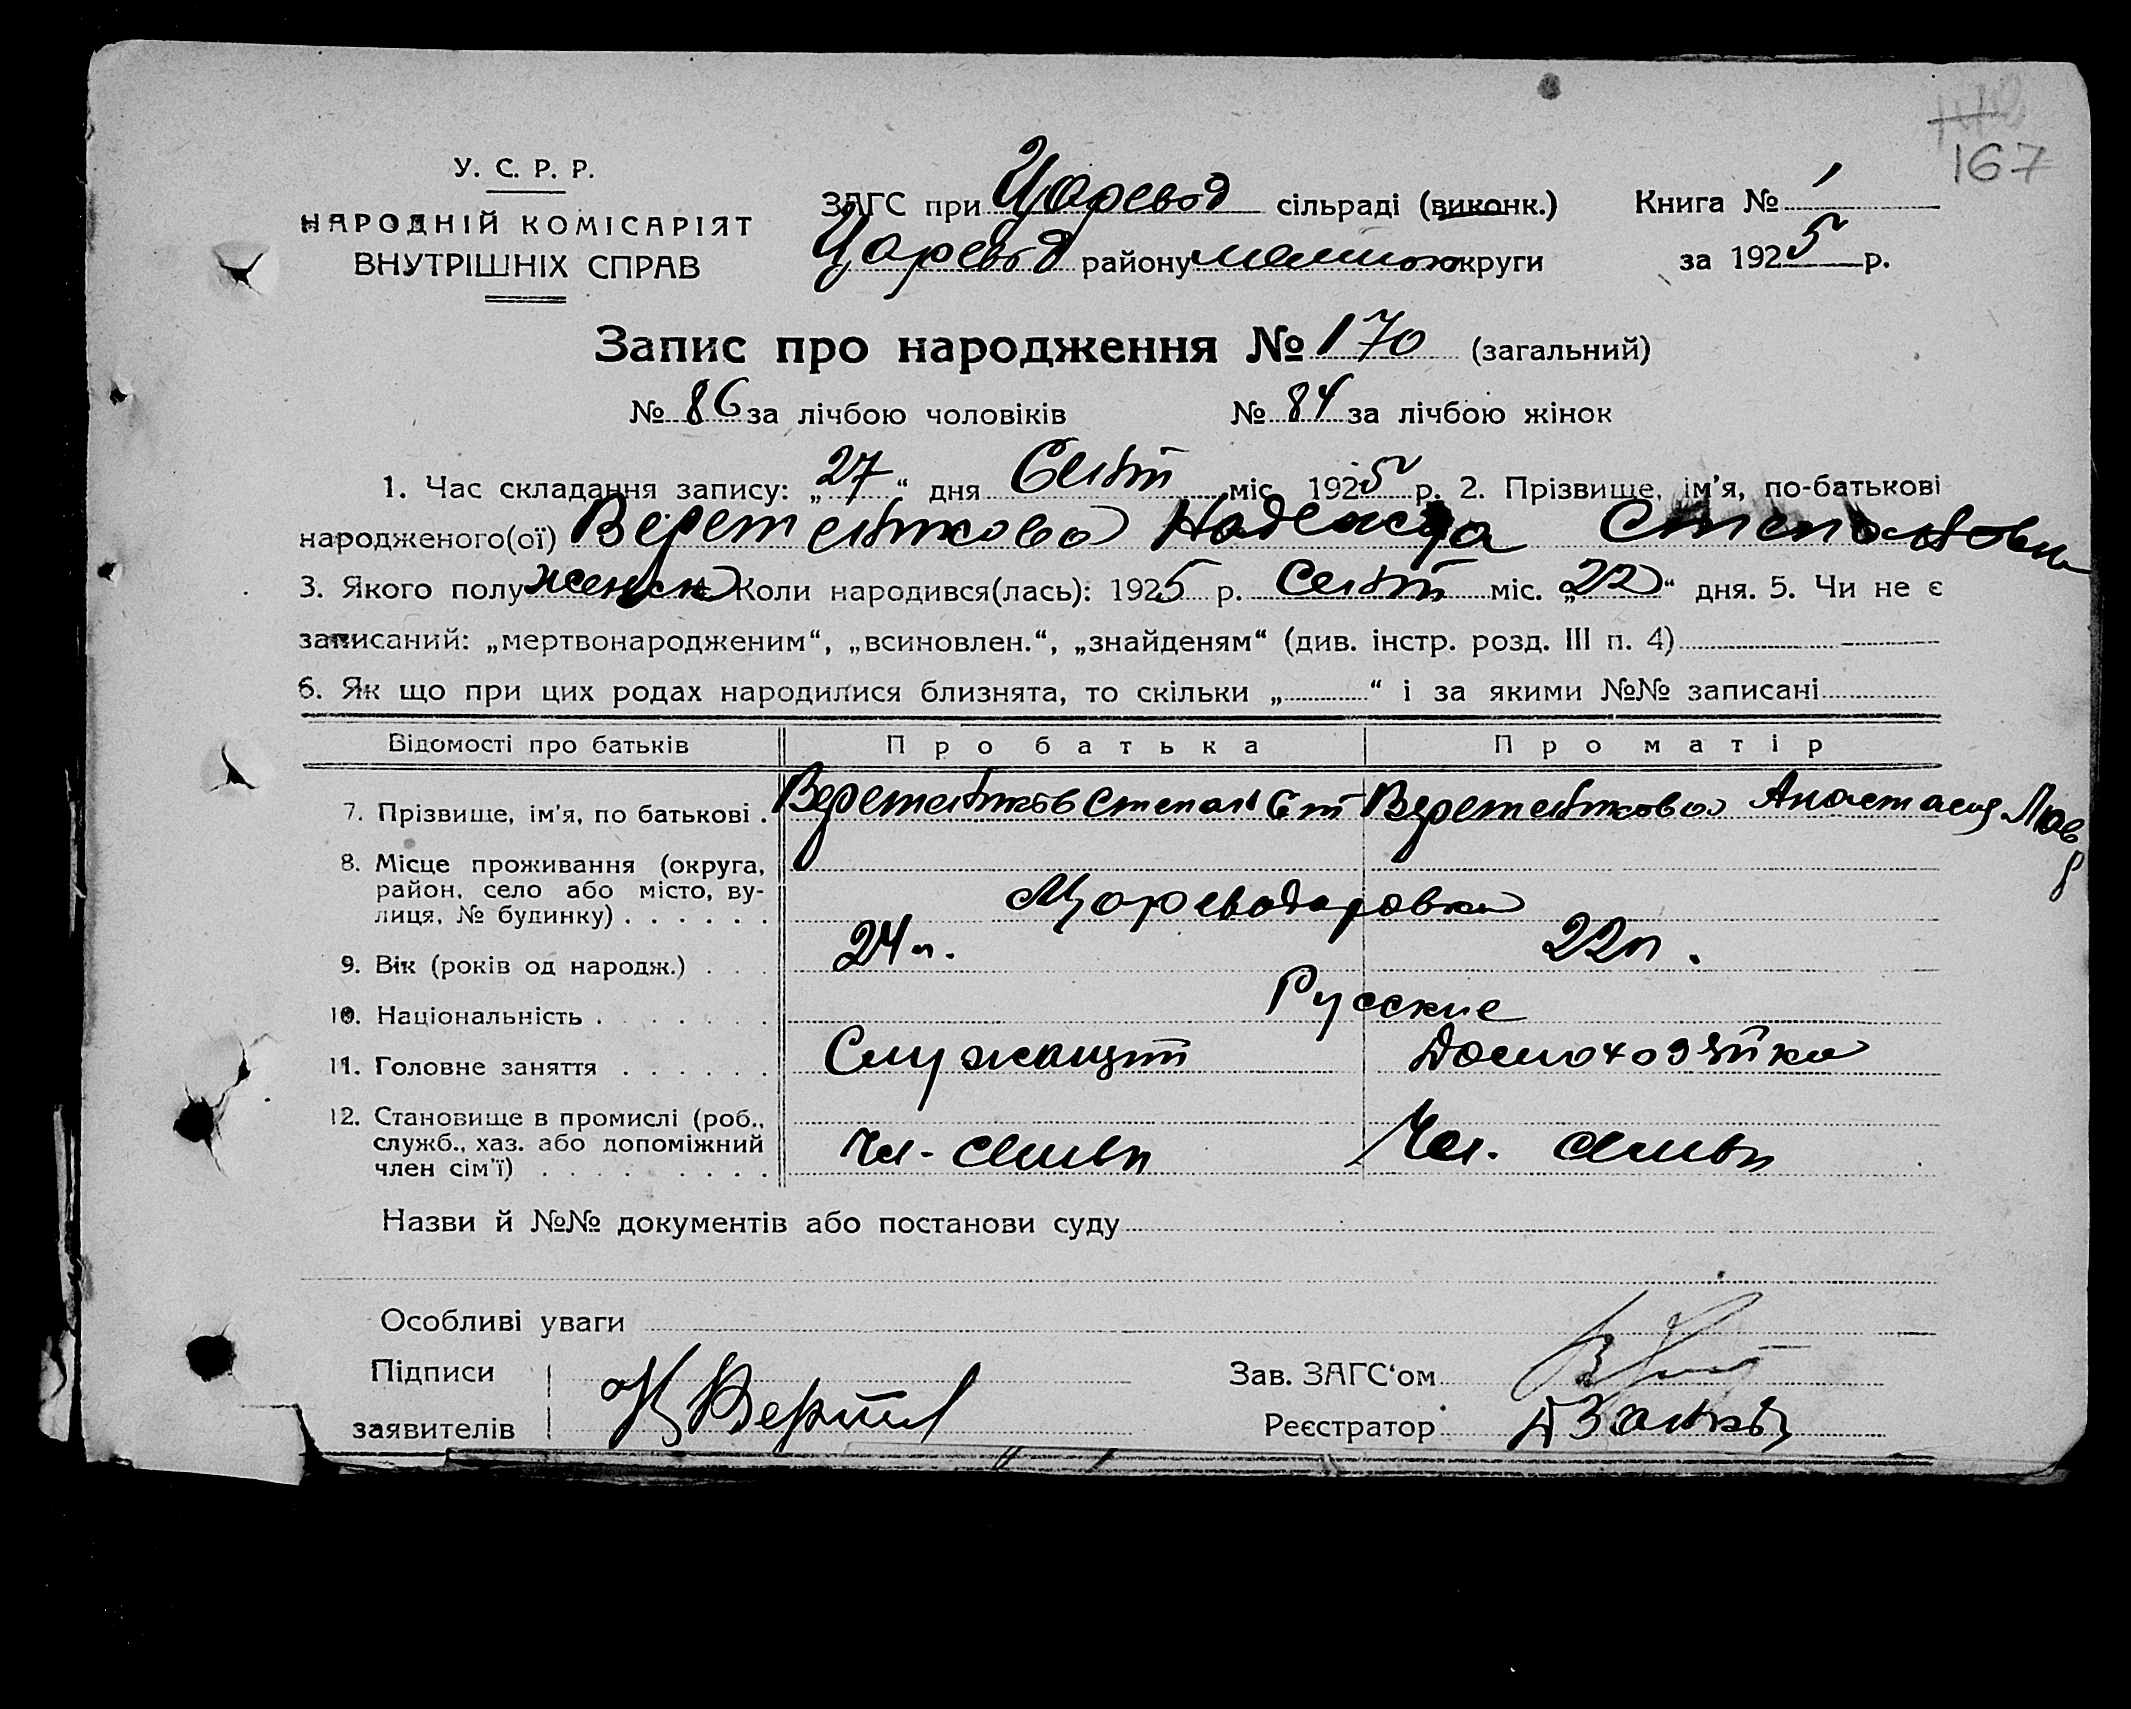 167
У. С. Р. Р.
НАРОДНІЙ КОМІСАРІЯТ
ВНУТРІШНІХ СПРАВ
ЗАГС при Царевод сільраді (виконк.)
Царевод району округи
Книга № 1
за 1925 р.
Запис про народження № 170 (загальний)
№ 86 за лічбою чоловіків № 84 за лічбою жінок
1. Час складання запису: „27“ дня Сент міс. 1925 р. 2. Прізвище, ім'я, по-батькові
народженого(ої) Веретенникова Надежда Степановн
3. Якого полу женск Коли народився(лась): 1925 р. Сент міс. „22“ дня. 5. Чи не є
записаний: „мертвонародженим“, „всиновлен.“, „знайденям“ (див. інстр. розд. III п. 4)
6. Як що при цих родах народилися близнята, то скільки „ “ і за якими №№ записані
Відомості про батьків Про батька Про матір
7. Прізвище, ім'я, по батькові . Степан Анастасия Лавр
8. Місце проживання (округа,
район, село або місто, ву-
лиця, № будинку) . . . . . . Цареводаровка
9. Вік (років од народж.) . . . 24 л. 22 л.
10. Національність . . . . . . . Русские
11. Головне заняття . . . . . . Служащий Домохозяйка
12. Становище в промислі (роб.,
служб., хаз. або допоміжний
член сім'ї) . . . . . . . . . Чл. семьи Чл. семьи
Назви й №№ документів або постанови суду
Особливі уваги
Підписи
заявителів
Зав. ЗАГС'ом
Реєстратор